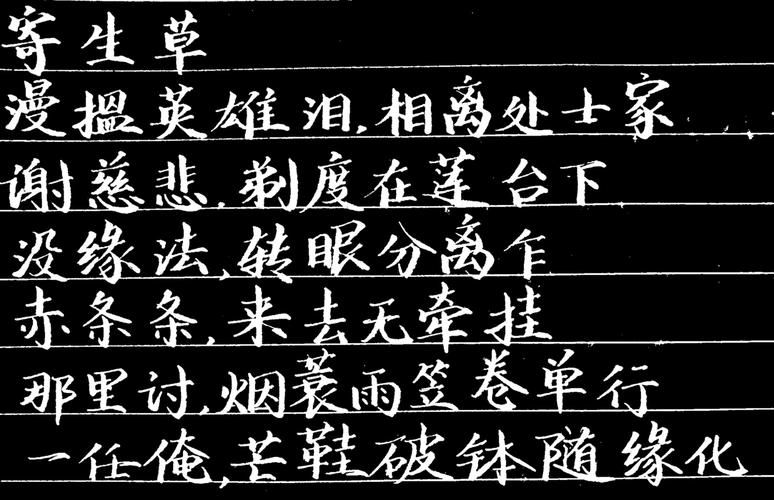 寄生草
漫揾英雄泪,相离处士家
谢慈悲.剃度在莲台下
没缘法,转眼分离乍
赤条条,来去无牵挂
那里讨,烟蓑雨笠卷单行
一任俺,芒鞋破钵随缘化